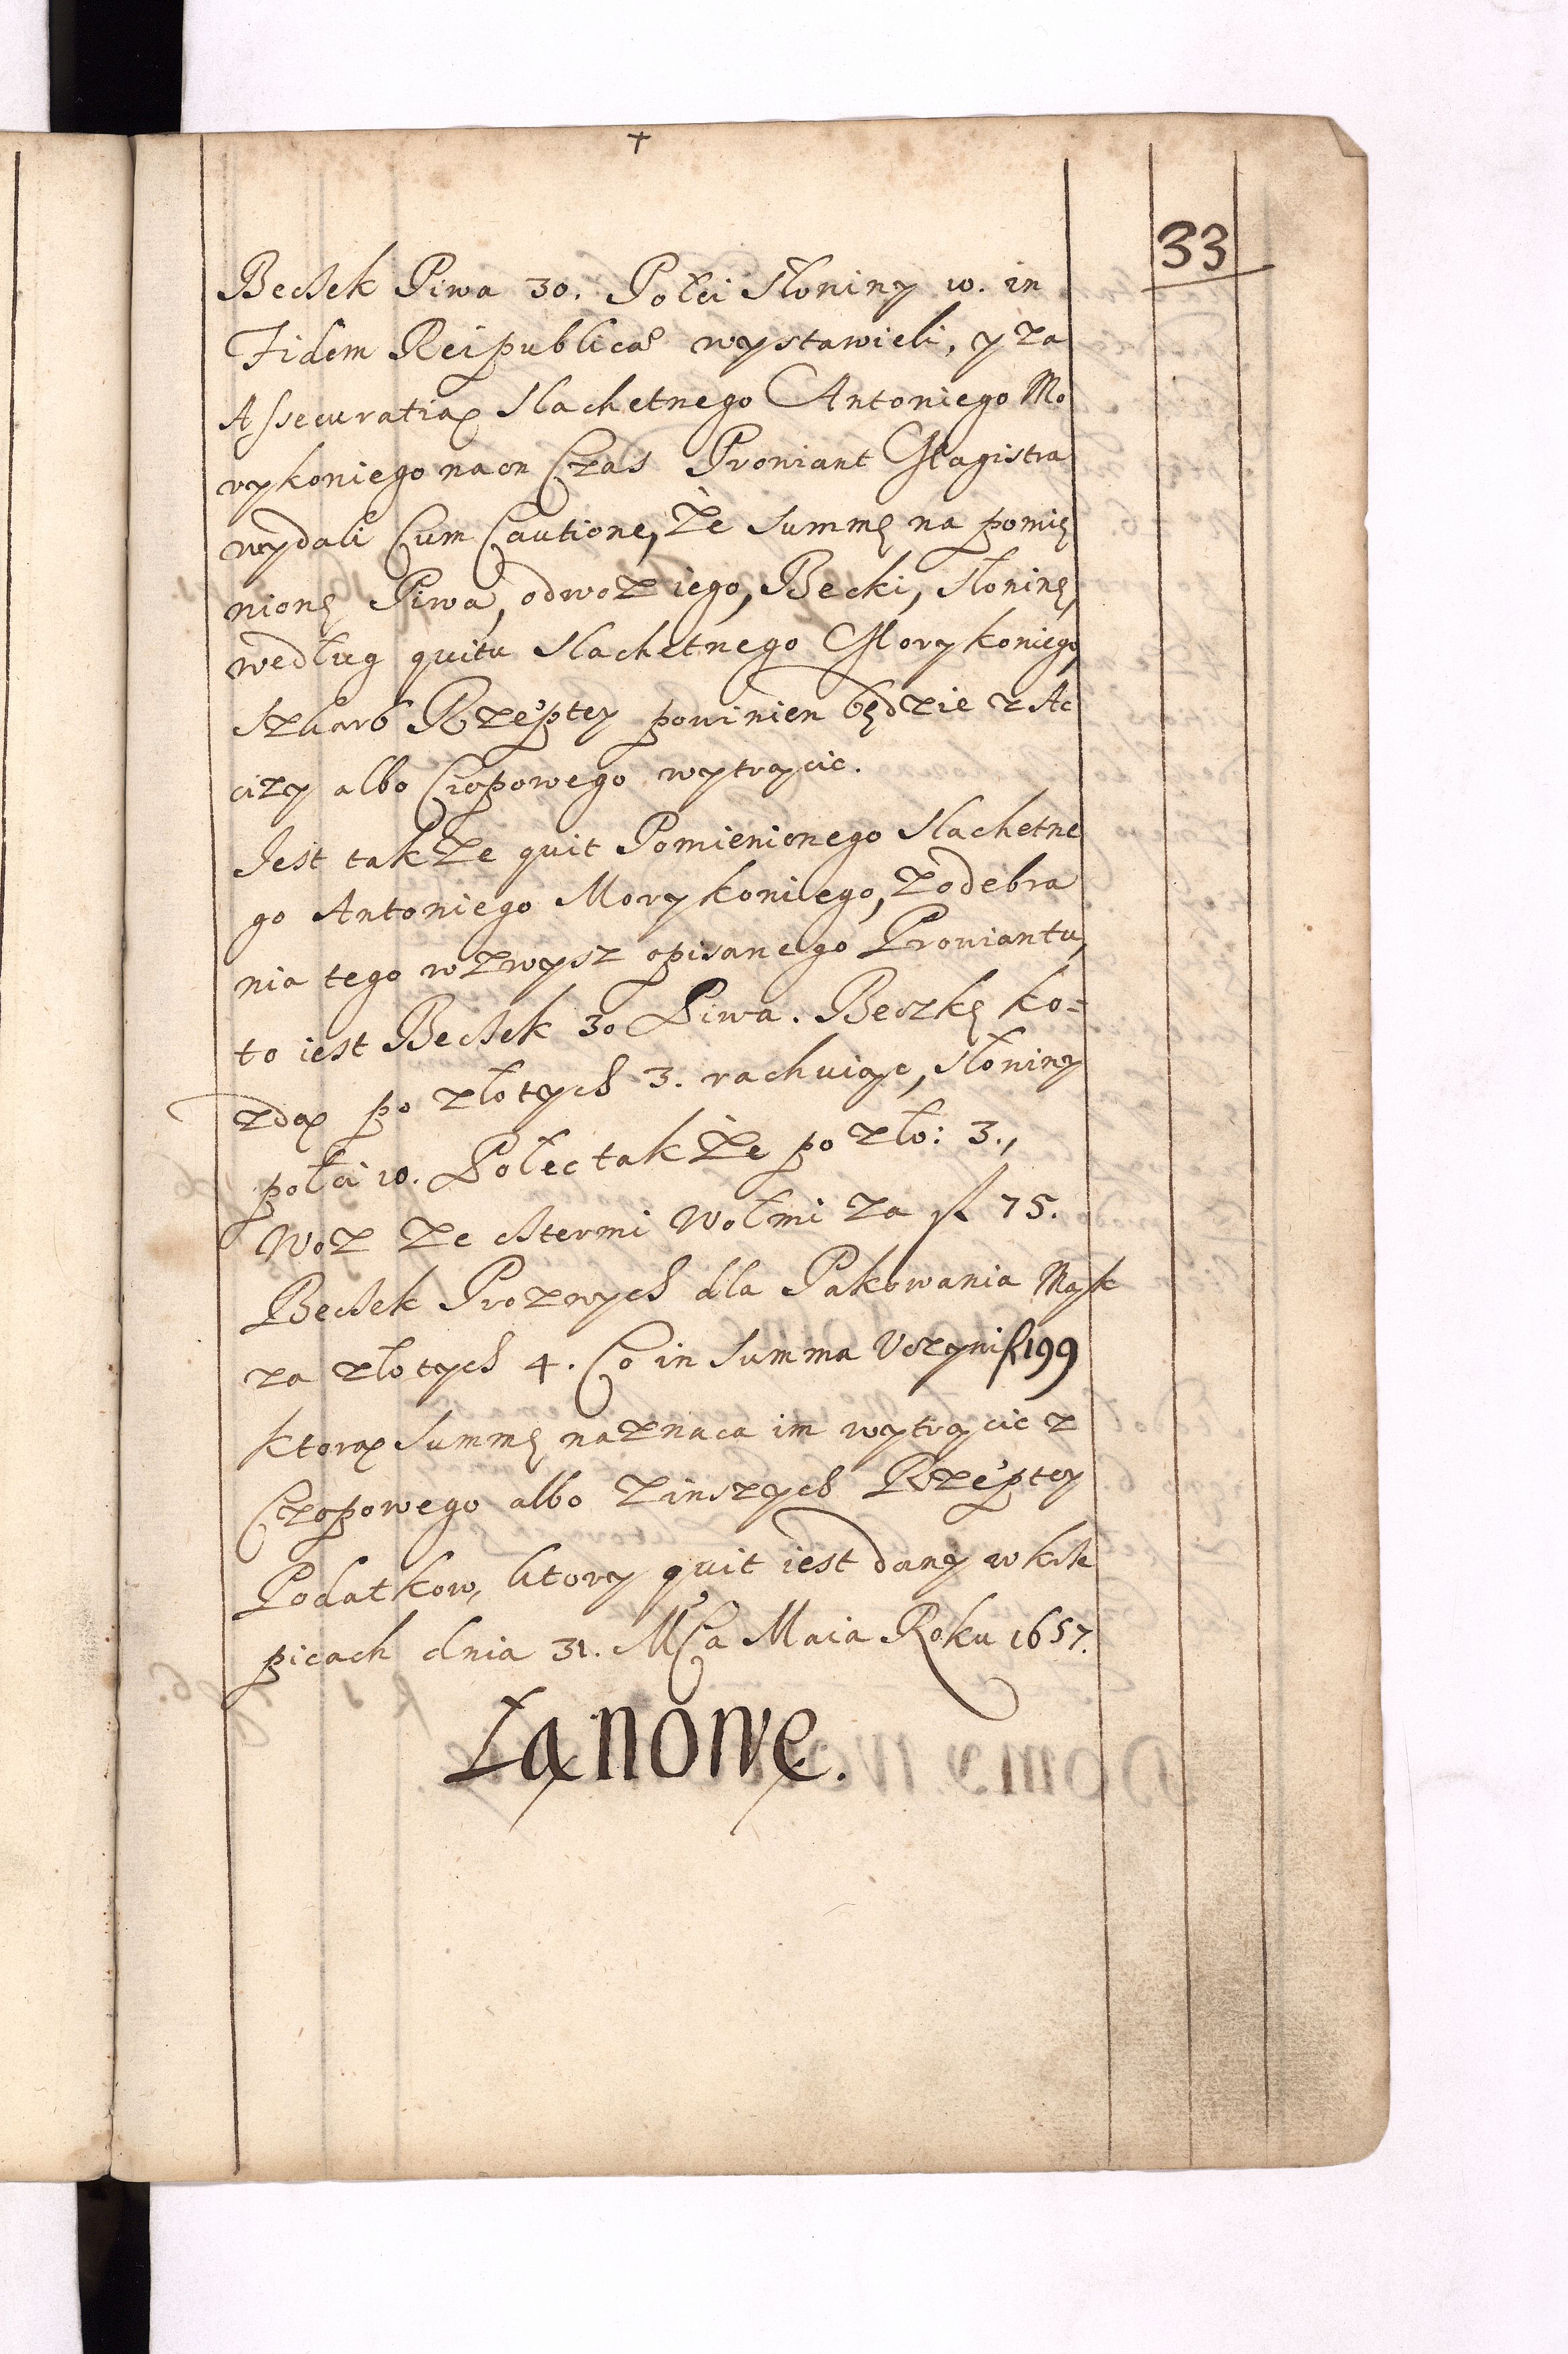 33
Beczek Piwa 30. Połci Słoniny 10. in
Fidem Reipublicae wystawieli, y za
Assecuratią Slachetnego Antoniego Mo
rykoniego na on Czas Proviant Magistra
wydali Cum Cautione, że Summę na pomię
nionę Piwa, odwoz iego, Becki, Słoninę,
według quitu Slachetnego Morykoniego,
Szkarb Rzeptey powinien będzie z Ac
cizy albo Czopowego wytrącic.
Jest takze quit Pomienionego Slachetne
go Antoniego Morykoniego, Zodebra
nia tego wzwysz opisanego Prowiantu,
to iest Beczek 30 Piwa. Beczkę ko=
zdą po złotych 3. rachuiąc, Słoniny
połci 10. Połec także po zło: 3.,
Woz ze cztermi Wołmi za fl 75.
Beczek Prozwych dla Pakowania Mąk
za złotych 4. Co in Summa Uczyni fl 199
ktorą Summę naznaca im wytrącic z
Czopowego albo Zinszych Rzeptey
Podatkow, ktory quit iest dany w Krze
picach dnia 31. MCa Maia Roku 1657.
Łąnowe.